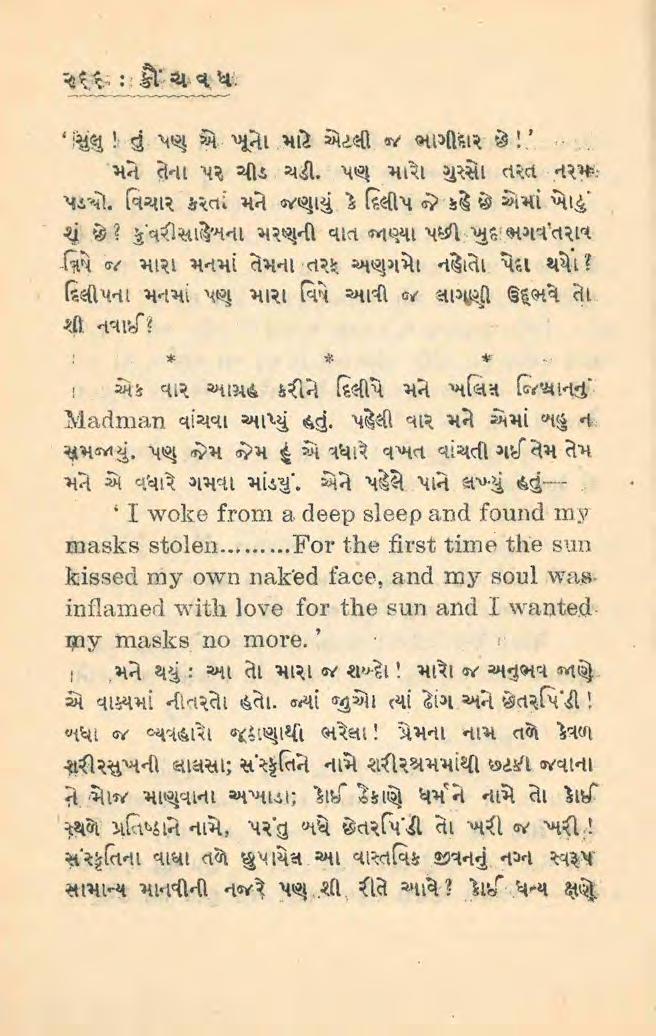 ૨૬૬ : ક્રૌંચવધ
‘ સુલુ ! તું પણ એ ખૂનો માટે એટલી જ ભાગીદાર છે ! ’
મને તેના પર ચીડ ચડી. પણ મારો ગુસ્સો તરત નરમ
પડ્યો. વિચાર કરતાં મને જણાયું કે દિલીપ જે કહે છે એમાં ખોટું
શું છે ? કુંવરીસાહેબના મરણની વાત જાણ્યા પછી ખુદ ભગવંતરાવ
વિષે જ મારા મનમાં તેમના તરફ અણગમો નહોતો પેદા થયો ?
દિલીપના મનમાં પણ મારા વિષે આવી જ લાગણી ઉદ્દભવે તો
શી નવાઈ ?
* * *
એક વાર આગ્રહ કરીને દિલીપે મને ખલિલ જિબ્રાનનું
Madman વાંચવા આપ્યું હતું. પહેલી વાર મને એમાં બહુ ન
સમજાયું. પણ જેમ જેમ હું એ વધારે વખત વાંચતી ગઈ તેમ તેમ
મને એ વધારે ગમવા માંડ્યું. એને પહેલે પાને લખ્યું હતું—
‘ I woke from a deep sleep and found my
masks stolen.........For the first time the sun
kissed my own naked face, and my soul was
inflamed with love for the sun and I wanted
my masks no more. ’
મને થયું : આ તો મારા જ શબ્દો ! મારો જ અનુભવ જાણે
એ વાક્યમાં નીતરતો હતો. જ્યાં જુઓ ત્યાં ઢોંગ અને છેતરપિંડી !
બધા જ વ્યવહારો જૂઠાણાથી ભરેલા ! પ્રેમના નામ તળે કેવળ
શરીરસુખની લાલસા; સંસ્કૃતિને નામે શરીરશ્રમમાંથી છટકી જવાના
ને મોજ માણવાના અખાડા; કોઈ ઠેકાણે ધર્મને નામે તો કોઈ
સ્થળે પ્રતિષ્ઠાને નામે, પરંતુ બધે છેતરપિંડી તો ખરી જ ખરી !
સંસ્કૃતિના વાઘા તળે છુપાયેલ આ વાસ્તવિક જીવનનું નગ્ન સ્વરૂપ
સામાન્ય માનવીની નજરે પણ શી રીતે આવે ? કોઈ ધન્ય ક્ષણે